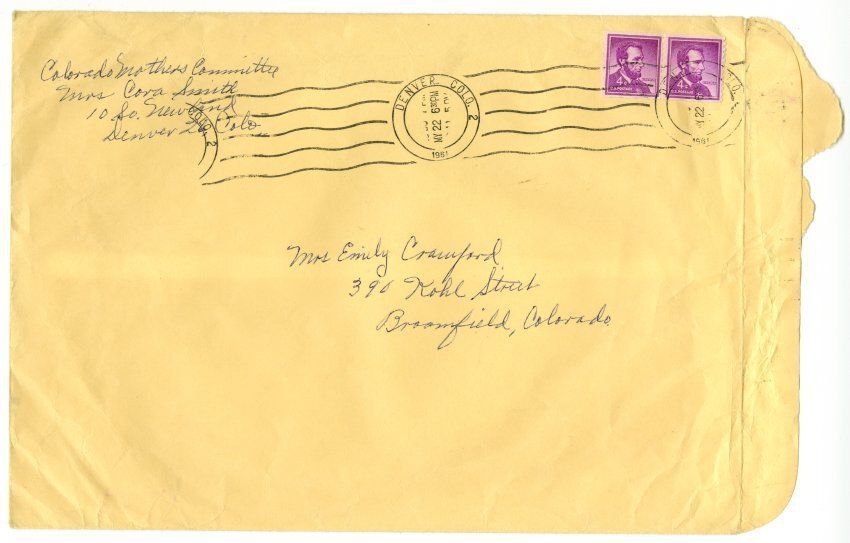 Colorado Mothers Committee
Mrs Cora Smith
10 So. Newland
Denver Colo
DENVER, COLO. 2
MY 22
6 PM
1961
4¢
U.S. POSTAGE
U.S. POSTAGE
MY 22
1961
COLO. 2
Mrs Emily Crawford
390 Kohl Street
Broomfield, Colorado